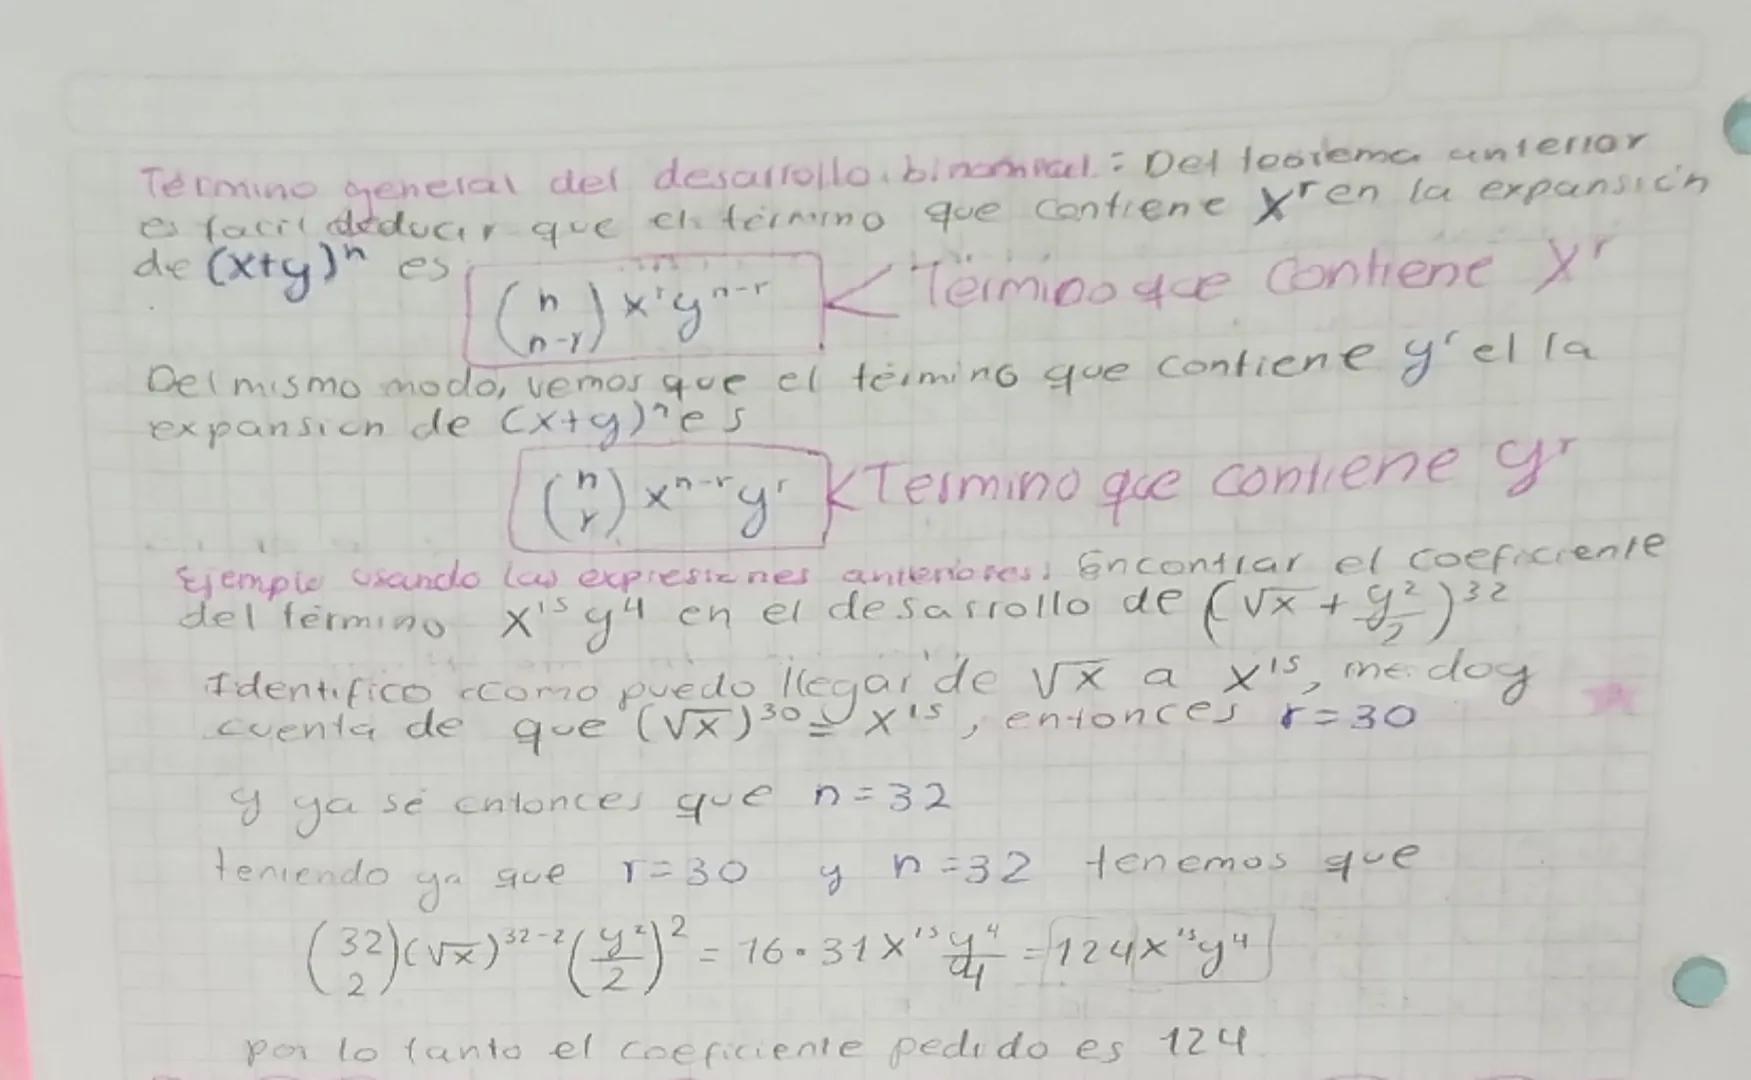 Término general del desarrollo binomial: Del teorema anterior
es facil deducir que el término que contiene x^r en la expansión
de (x+y)^n es
(n n-r) x^r y^n-r < Término que contiene x^r
Del mismo modo, vemos que el término que contiene y^r el la
expansión de (x+y)^n es
(n r) x^n-r y^r < Termino que contiene y^r
Ejemplo usando las expresiones anteriores: Encontrar el coeficiente
del término x^15 y^4 en el desarrollo de (√x + y^2/2)^32
Identifico como puedo llegar de √x a x^15, me doy
cuenta de que (√x)^30 = x^15, entonces r=30
y ya sé entonces que n=32
teniendo ya que r=30 y n=32 tenemos que
(32 2)(√x)^32-2 (y^2/2)^2 = 16·31 x^15 y^4/4 = 124x^15y^4
por lo tanto el coeficiente pedido es 124